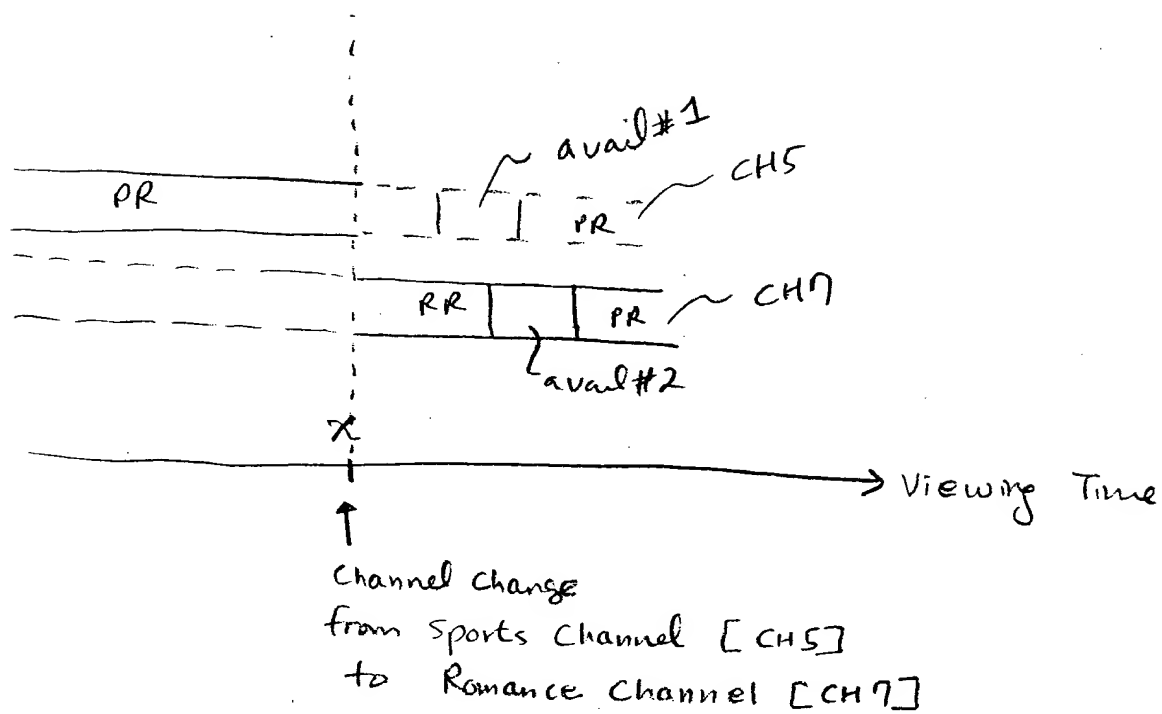 avail#1
CH5
PR
PR
CH7
RR
PR
avail#2
x
Viewing Time
Channel Change
from Sports Channel [CH5]
to Romance Channel [CH7]